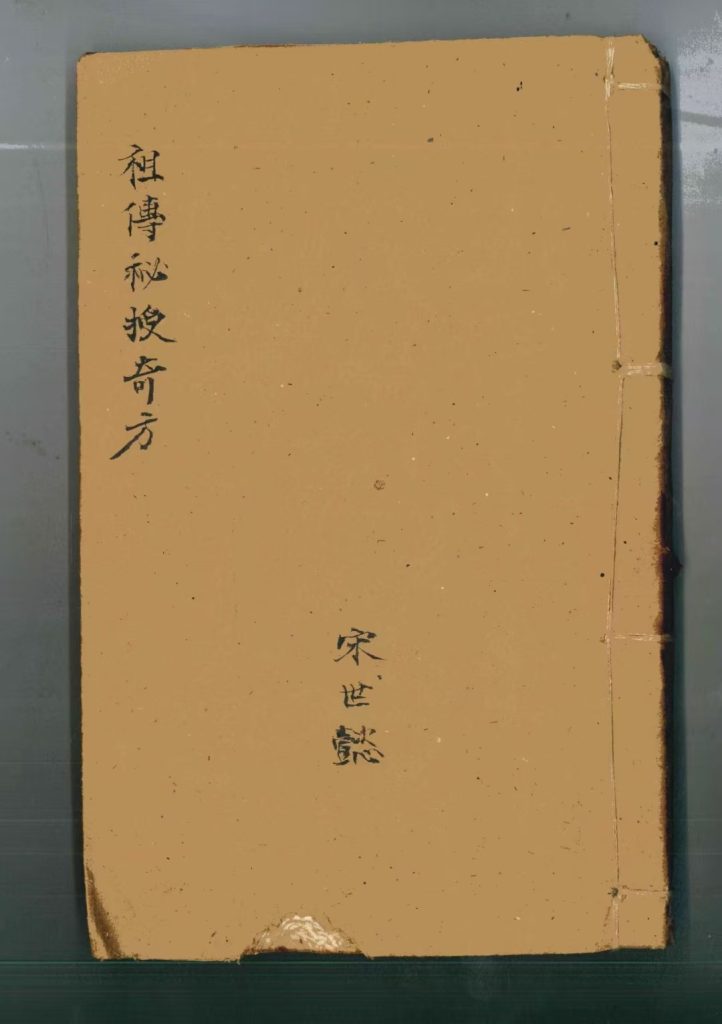 祖傳秘授奇方
宋世懿